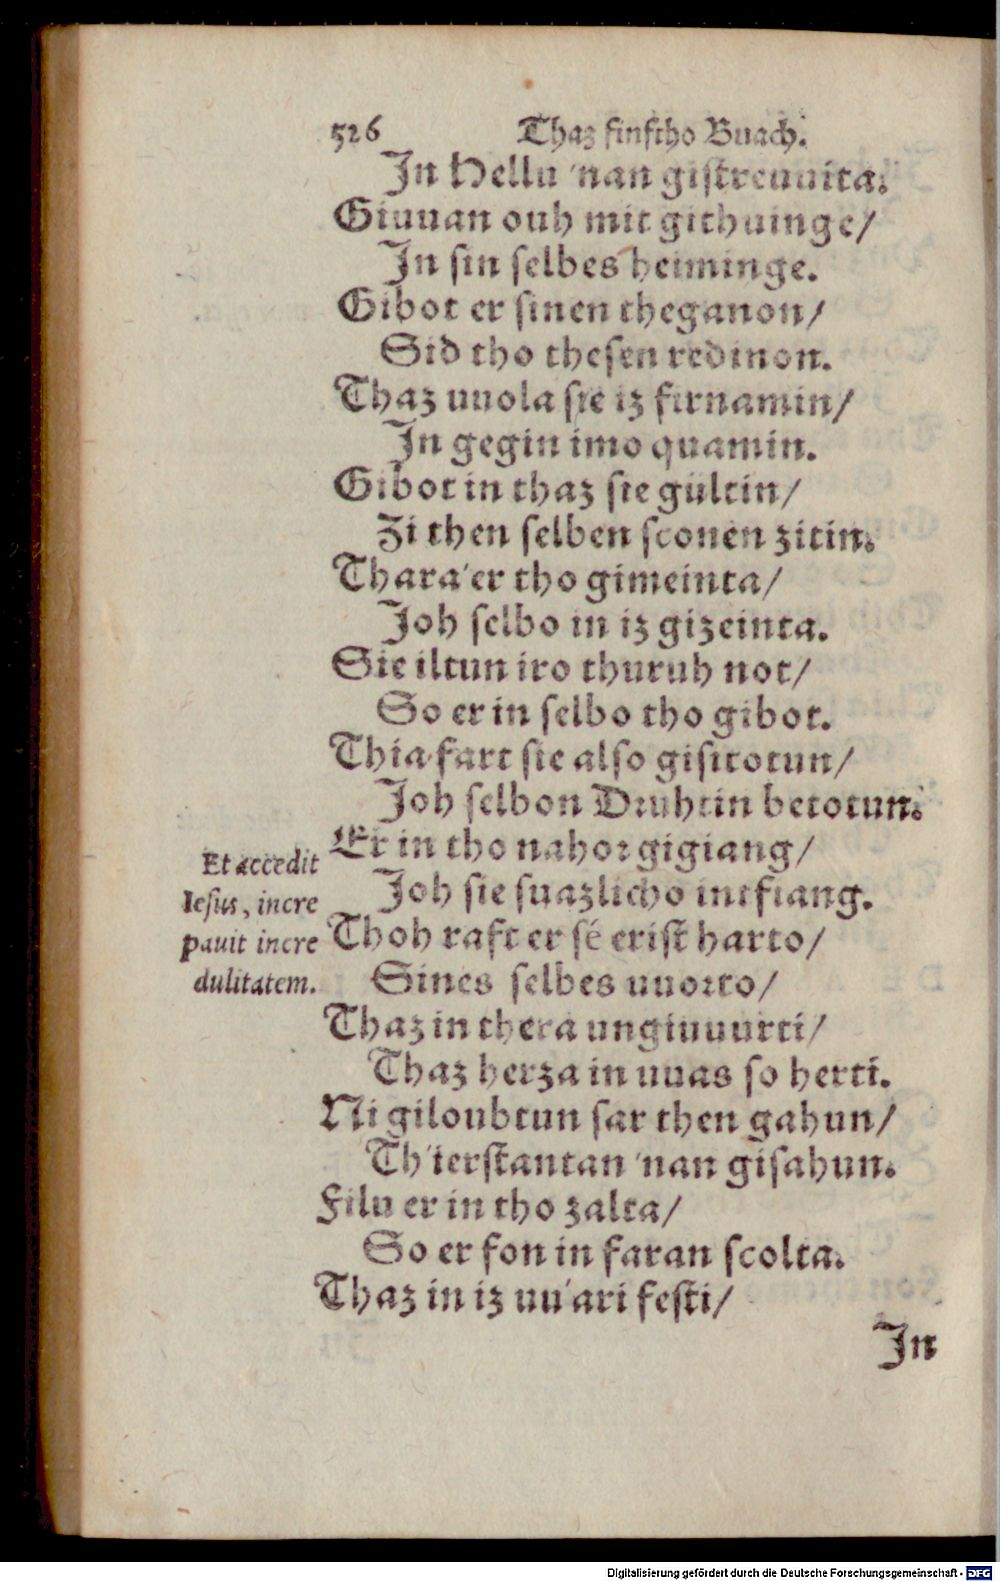 526 Thaz finftho Buach.
Jn Hellu 'nan giſtreuuita.
Giuuan ouh mit githuinge/
Jn ſin ſelbes heiminge.
Gibot er ſinen theganon/
Sid tho theſen redinon.
Thaz uuola ſie iz firnamin/
Jn gegin imo quamin.
Gibot in thaz ſie gultin/
Zi then ſelben ſconen zitin.
Thara'er tho gimeinta/
Joh ſelbo in iz gizeinta.
Sie iltun iro thuruh not/
So er in ſelbo tho gibot.
Thia fart ſie alſo giſitotun/
Joh ſelbon Druhtin betotun.
Er in tho nahor gigiang/
Joh ſie ſuazlicho intfiang.
Thoh raft er ſé eriſt harto/
Sines ſelbes uuorto/
Thaz in thera ungiuuurti/
Thaz herza in uuas ſo herti.
Ni giloubtun ſar then gahun/
Th'ierſtantan 'nan giſahun.
Filu er in tho zalta/
So er fon in faran ſcolta.
Thaz in iz uu'ari feſti/
Jn
Et accedit
Ieſus, incre
pavit incre
dulitatem.
Digitalisierung gefördert durch die Deutsche Forschungsgemeinschaft - DFG